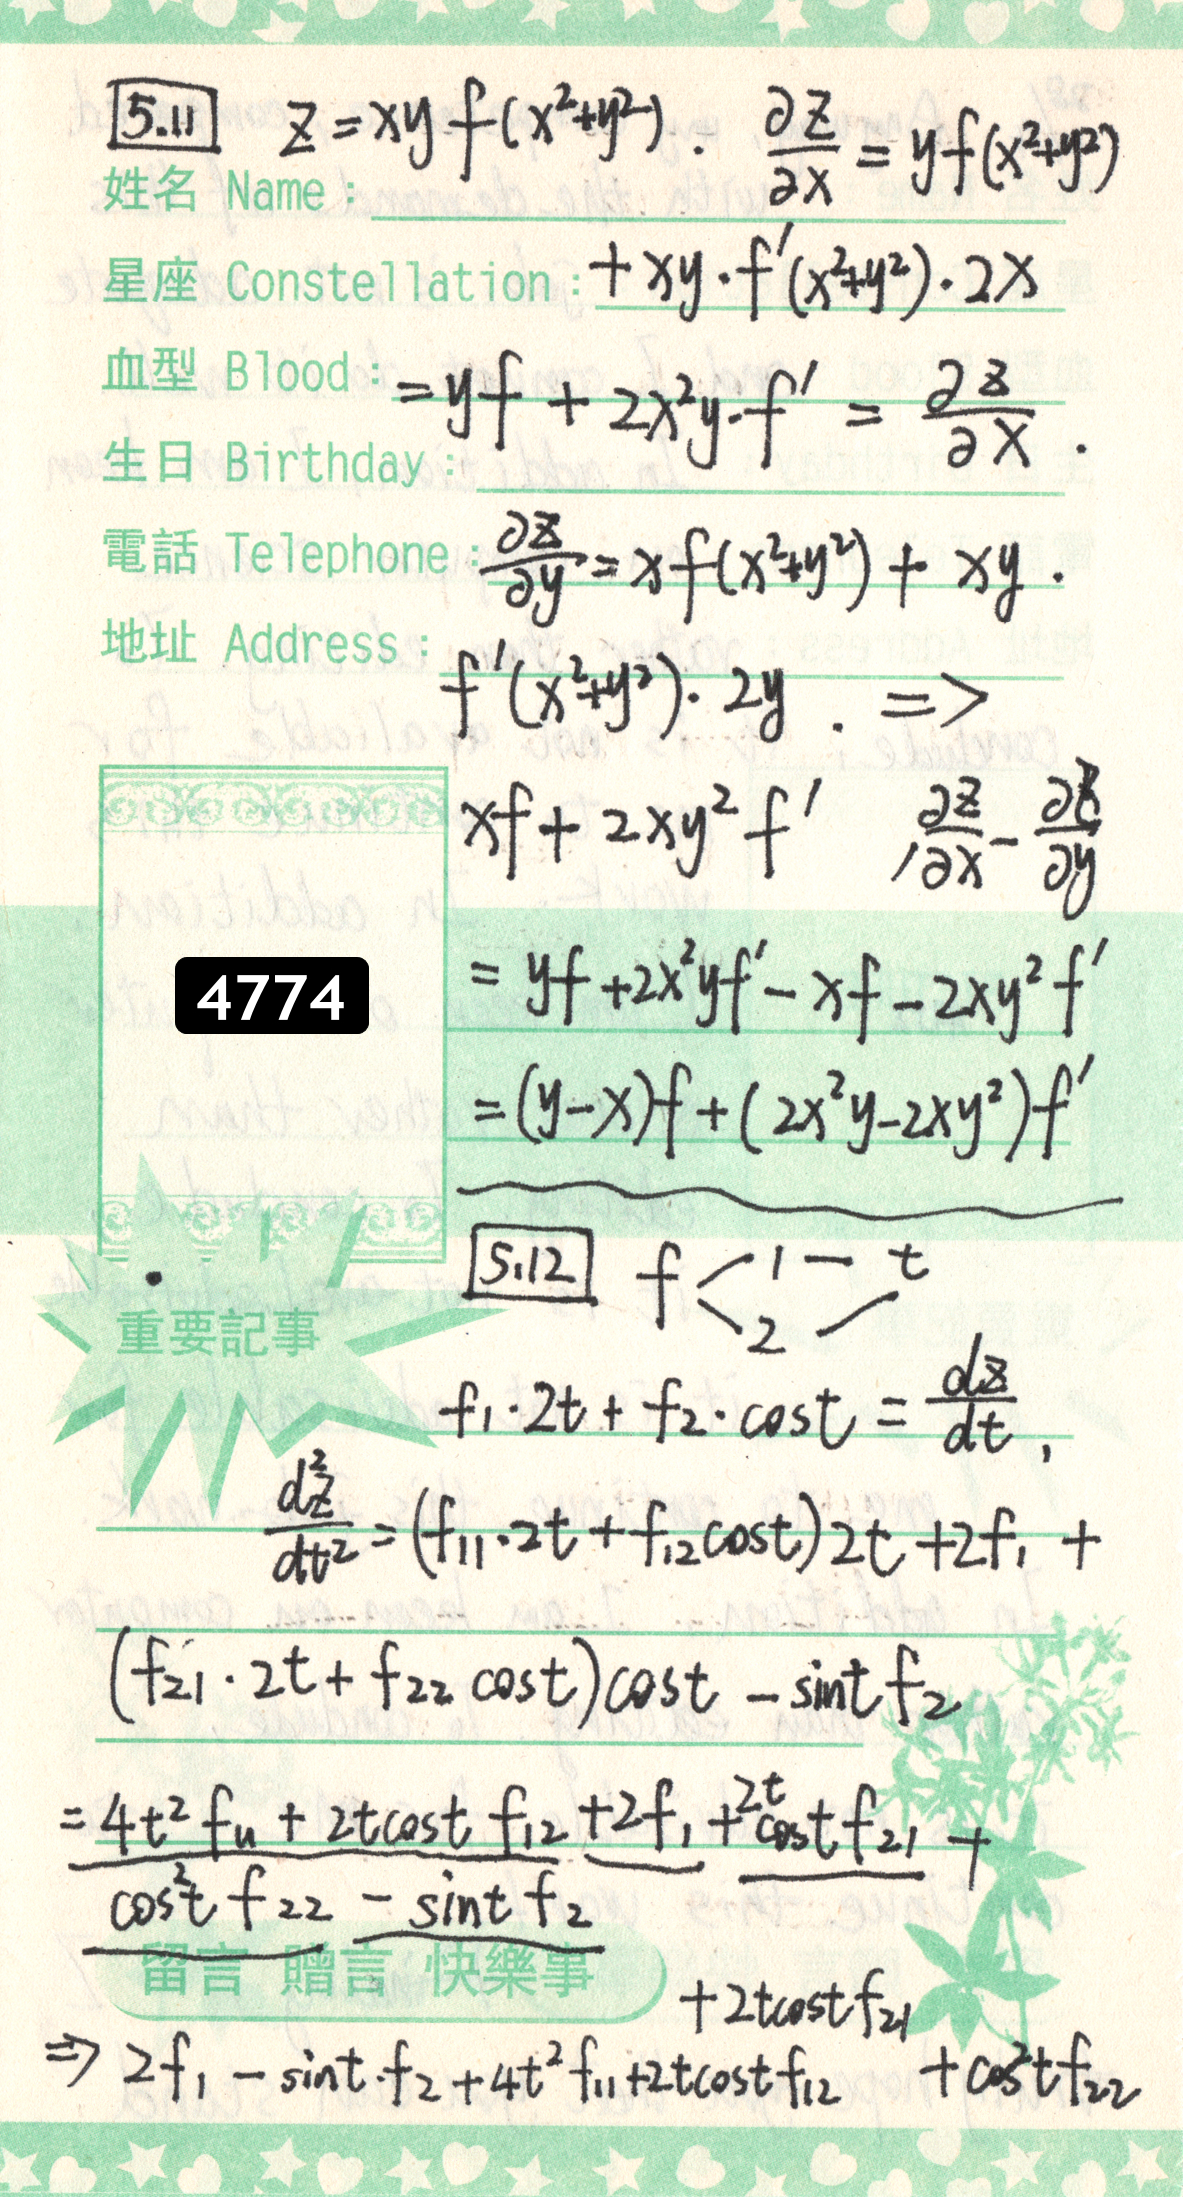 5.11 z = xy f(x²+y²). ∂z/∂x = yf(x²+y²)
姓名 Name:
星座 Constellation: + xy · f'(x²+y²) · 2x
血型 Blood: = yf + 2x²y · f' = ∂z/∂x .
生日 Birthday:
電話 Telephone: ∂z/∂y = x f(x²+y²) + xy ·
地址 Address: f'(x²+y²) · 2y . =>
xf + 2xy² f' , ∂z/∂x - ∂z/∂y
= yf + 2x²yf' - xf - 2xy² f'
4774
= (y-x)f + (2x²y - 2xy²)f'
5.12 f < 1 — t
2
重要記事
f₁ · 2t + f₂ · cost = dz/dt ,
d²z/dt² = (f₁₁ · 2t + f₁₂ cost) 2t + 2f₁ +
(f₂₁ · 2t + f₂₂ cost) cost - sint f₂
= 4t² f₁₁ + 2tcost f₁₂ + 2f₁ + 2t cost f₂₁ +
cos²t f₂₂ - sint f₂
留言 贈言 快樂事
+ 2tcost f₂₁
=> 2f₁ - sint · f₂ + 4t² f₁₁ + 2tcost f₁₂ + cos²t f₂₂